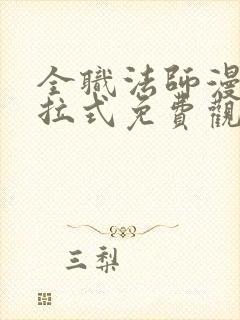 全職法師漫
拉式免費觀
三梨